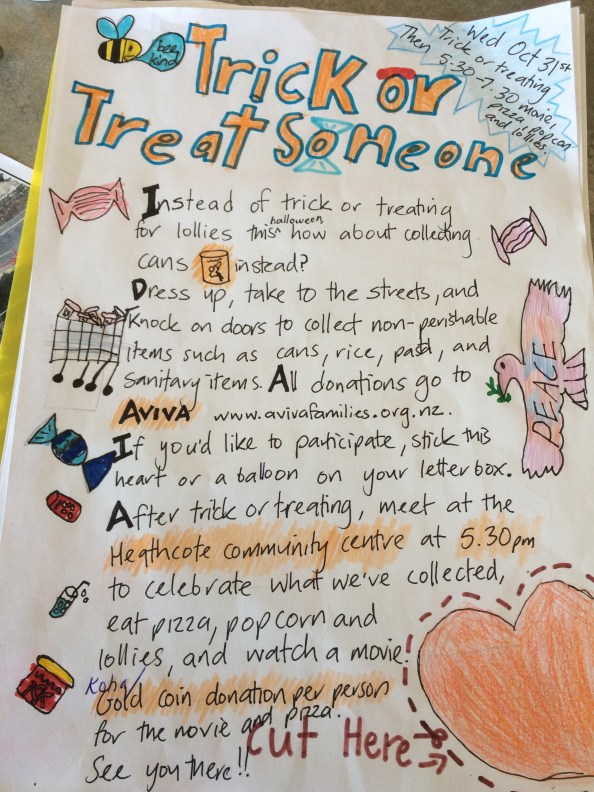 bee
kind
Trick or
Treat Someone
Wed Oct 31st
Trick or treating
Then
5:30-7.30 movie,
pizza, popcorn
and lollies.
Instead of trick or treating
for lollies this halloween how about collecting
cans instead?
Dress up, take to the streets, and
Knock on doors to collect non-perishable
items such as cans, rice, pasta, and
Sanitary items. All donations go to
AVIVA www.avivafamilies.org.nz.
If you'd like to participate, stick this
heart or a balloon on your letterbox.
After trick or treating, meet at the
Heathcote community centre at 5.30pm
to celebrate what we've collected,
eat pizza, popcorn and
lollies, and watch a movie!
Koha/
Gold coin donation per person
for the movie and pizza.
See you there!!
PEACE
Cut Here